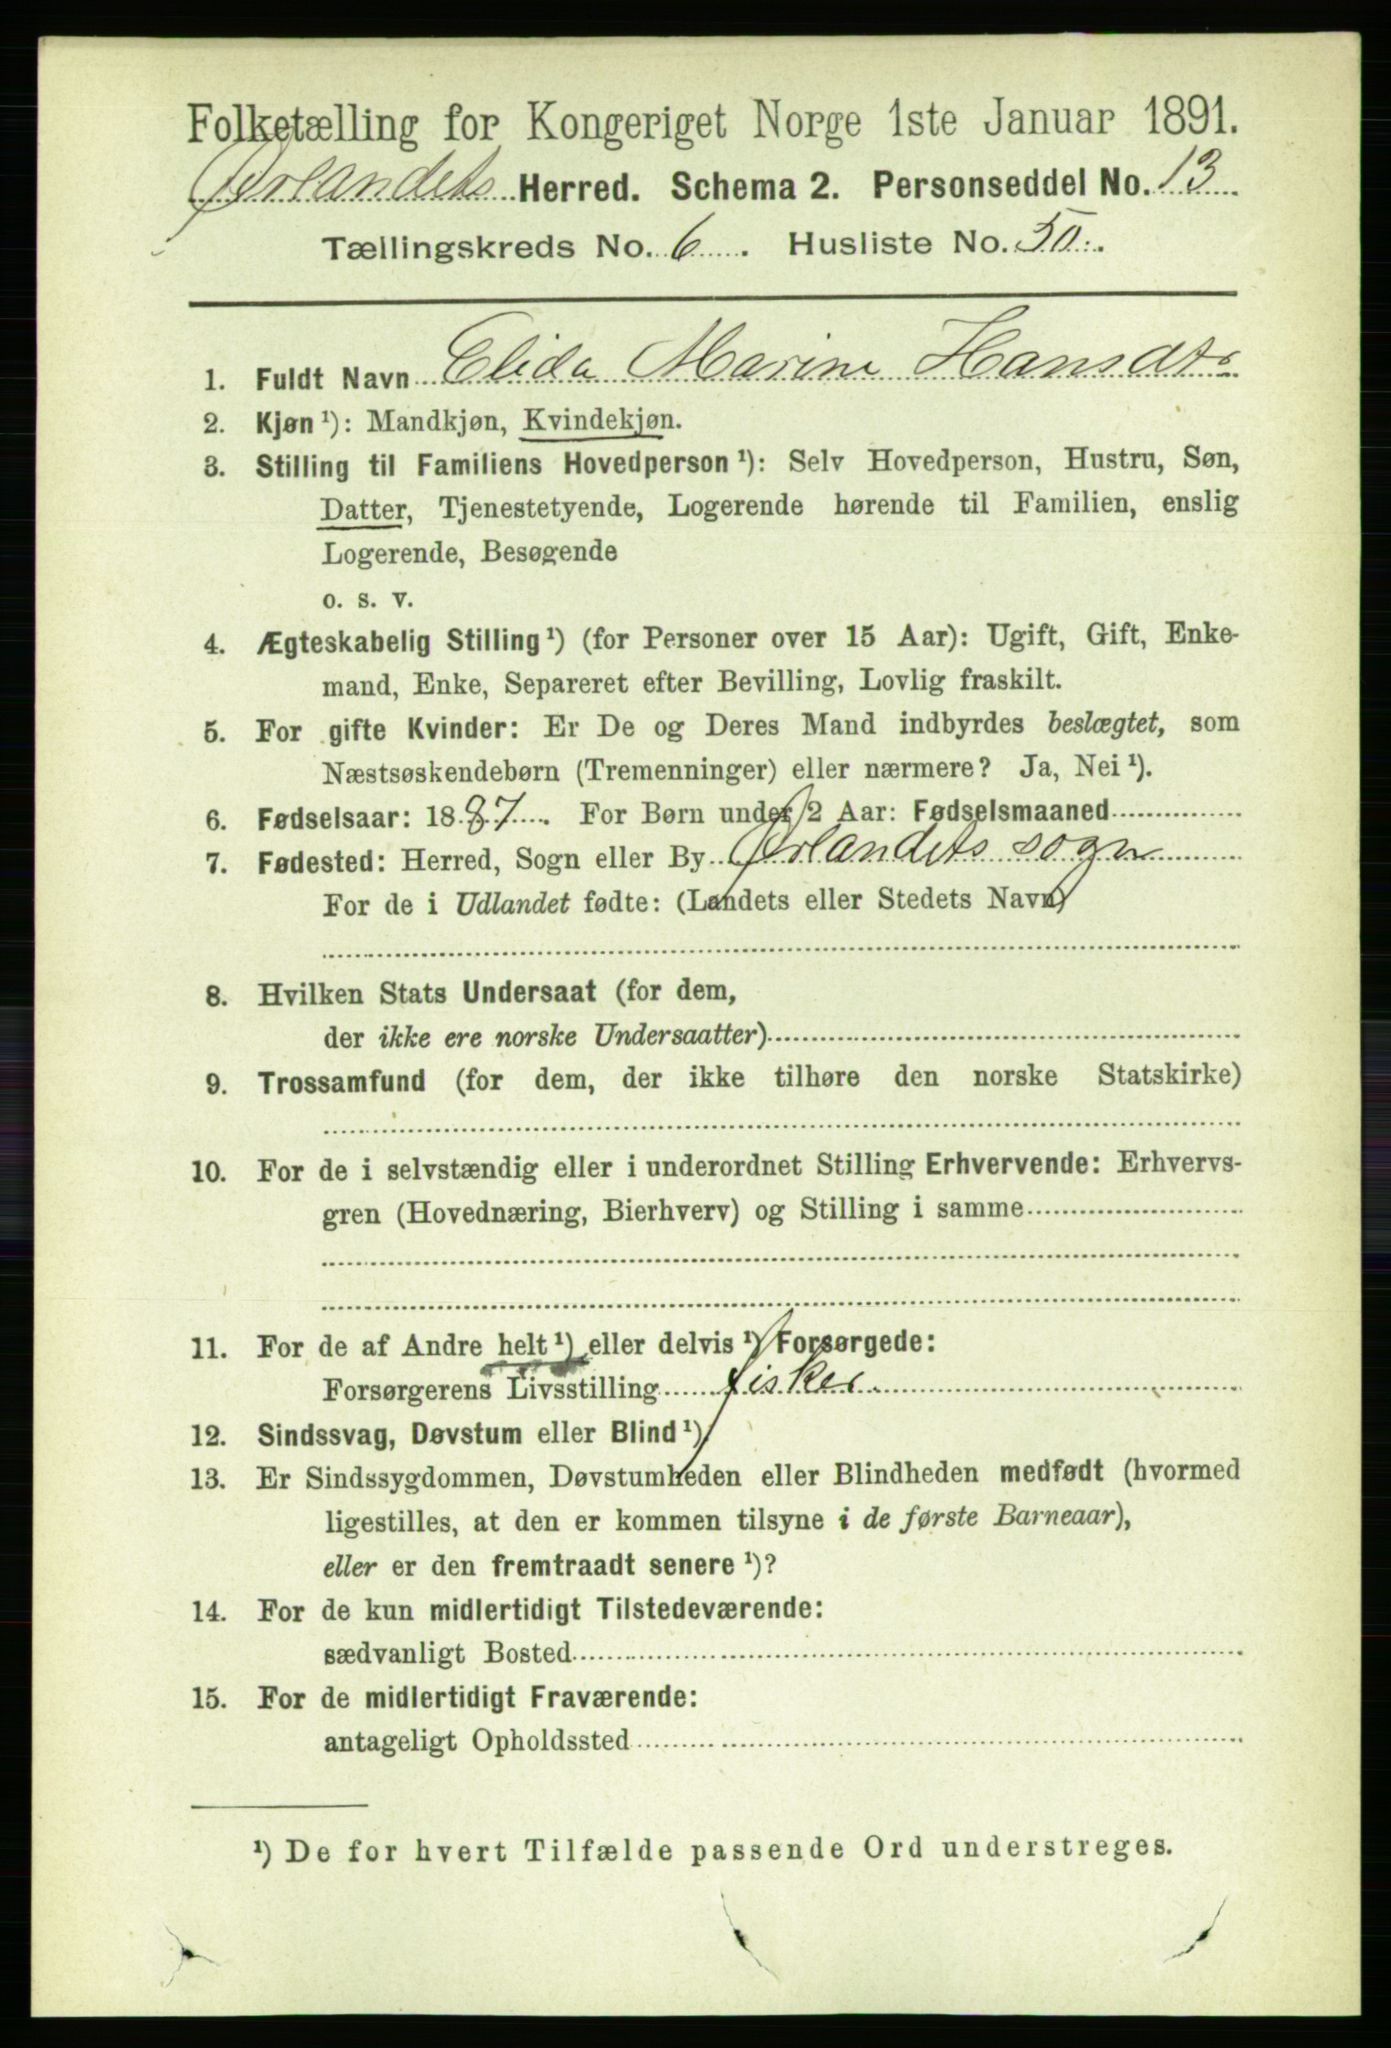 Folketælling for Kongeriget Norge 1ste Januar 1891.
Ørlandets Herred. Schema 2. Personseddel No. 13
Tællingskreds No. 6. Husliste No. 50.
1. Fuldt Navn Elida Marine Hansdtr
2. Kjøn ¹): Mandkjøn, Kvindekjøn.
3. Stilling til Familiens Hovedperson ¹): Selv Hovedperson, Hustru, Søn,
Datter, Tjenestetyende, Logerende hørende til Familien, enslig
Logerende, Besøgende
o. s. v.
4. Ægteskabelig Stilling ¹) (for Personer over 15 Aar): Ugift, Gift, Enke-
mand, Enke, Separeret efter Bevilling, Lovlig fraskilt.
5. For gifte Kvinder: Er De og Deres Mand indbyrdes beslægtet, som
Næstsøskendebørn (Tremenninger) eller nærmere? Ja, Nei ¹).
6. Fødselsaar: 1887. For Børn under 2 Aar: Fødselsmaaned
7. Fødested: Herred, Sogn eller By Ørlandets sogn
For de i Udlandet fødte: (Landets eller Stedets Navn)
8. Hvilken Stats Undersaat (for dem,
der ikke ere norske Undersaatter)
9. Trossamfund (for dem, der ikke tilhøre den norske Statskirke)
10. For de i selvstændig eller i underordnet Stilling Erhvervende: Erhvervs-
gren (Hovednæring, Bierhverv) og Stilling i samme
11. For de af Andre helt ¹) eller delvis ¹) Forsørgede:
Forsørgerens Livsstilling fisker
12. Sindssvag, Døvstum eller Blind ¹)
13. Er Sindssygdommen, Døvstumheden eller Blindheden medfødt (hvormed
ligestilles, at den er kommen tilsyne i de første Barneaar),
eller er den fremtraadt senere ¹)?
14. For de kun midlertidigt Tilstedeværende:
sædvanligt Bosted
15. For de midlertidigt Fraværende:
antageligt Opholdssted
¹) De for hvert Tilfælde passende Ord understreges.